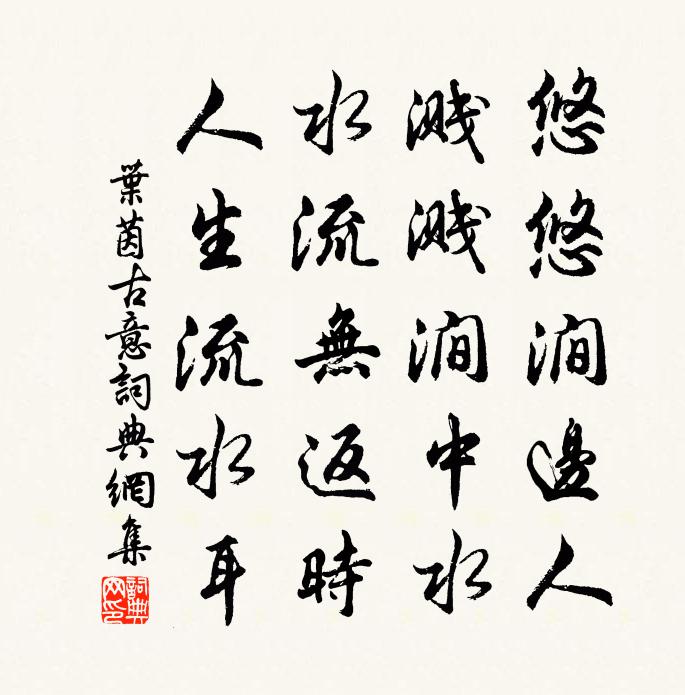 悠悠澗邊人
濺濺澗中水
水流無返時
人生流水耳
葉茵古意詞典網集
詞典網印